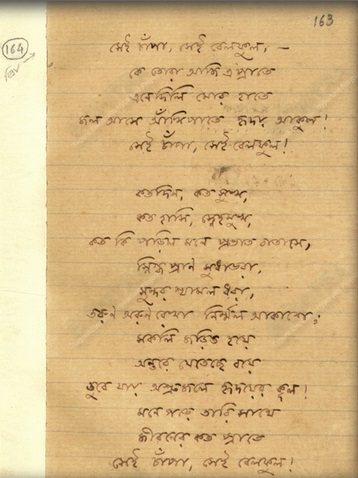 163
164
সেই চাঁপা, সেই বেলফুল, —
কে তোরা আজি এ প্রাতে
এনে দিলি মোর হাতে
জল আসে আঁখিপাতে হৃদয় আকুল!
সেই চাঁপা, সেই বেলফুল!
কতদিন, কত সুখ,
কত হাসি, স্নেহমুখ,
কত কি পড়িল মনে প্রভাত বাতাসে,
স্নিগ্ধ প্রাণ সুধাভরা,
সুন্দর শ্যামল ধরা,
তরুণ অরুণ রেখা নির্ম্মল আকাশে;
সকলি জড়িত হয়ে
অন্তরে যেতেছে বয়ে
ডুবে যায় অশ্রুজলে হৃদয়ের কূল!
মনে পড়ে তারি সাথে
জীবনের কত প্রাতে
সেই চাঁপা, সেই বেলফুল!